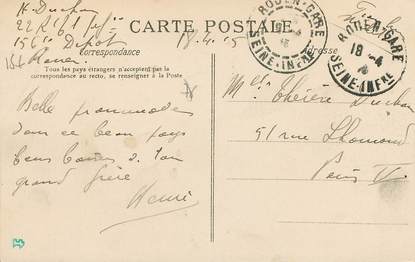 H. Duchon
CARTE POSTALE
18.4.15
Correspondance
Adresse
Rouen
Tous les pays étrangers n'acceptent pas la
correspondance au recto, se renseigner à la Poste
ROUEN-GARE
SEINE-INFRE
ROUEN-GARE
18-4
SEINE-INFRE
Belle promenade
dans ce beau pays
Bons baisers de ton
grand frère
Henri
Melle Thérèse Duchon
51 rue Lhomond
Paris V